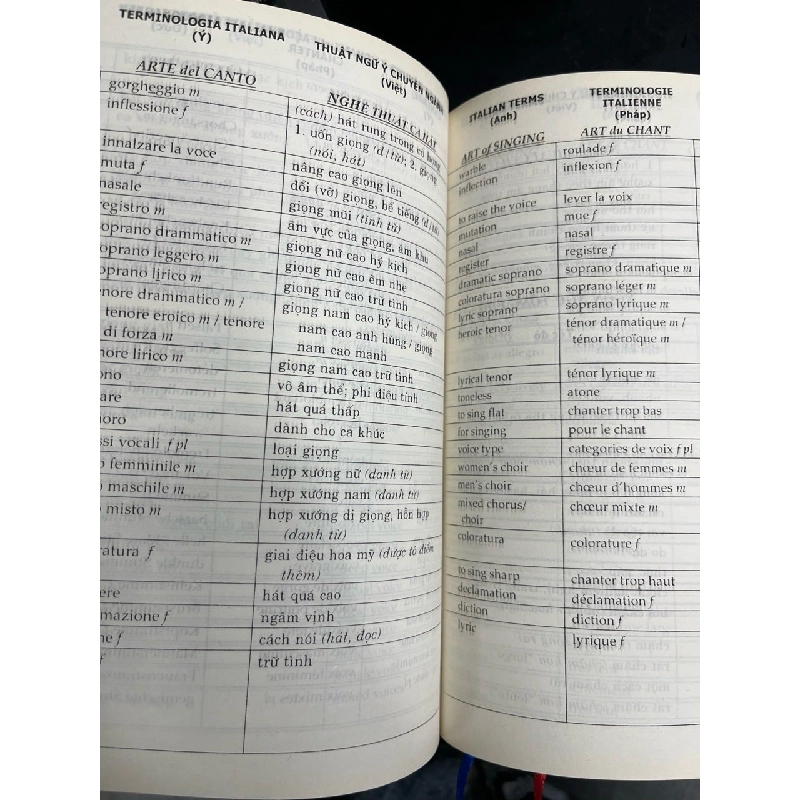 TERMINOLOGIA ITALIANA
(Ý)
THUẬT NGỮ Ý CHUYÊN NGÀNH
(Việt)
ARTE del CANTO
NGHỆ THUẬT CA HÁT
gorgheggio m
(cách) hát rung trong cổ họng
inflessione f
1. uốn giọng (d / từ); 2. giọng
(nói, hát)
innalzare la voce
nâng cao giọng lên
muta f
đổi (vỡ) giọng, bể tiếng
nasale
giọng mũi (tính từ)
registro m
âm vực của giọng, âm khu
soprano drammatico m
giọng nữ cao hý kịch
soprano leggero m
giọng nữ cao êm nhẹ
soprano lirico m
giọng nữ cao trữ tình
tenore drammatico m /
giọng nam cao hý kịch / giọng
tenore eroico m / tenore
nam cao anh hùng / giọng
di forza m
nam cao mạnh
nore lirico m
giọng nam cao trữ tình
ono
vô âm thể; phi điệu tính
are
hát quá thấp
noro
dành cho ca khúc
ssi vocali f pl
loại giọng
o femminile m
hợp xướng nữ (danh từ)
o maschile m
hợp xướng nam (danh từ)
o misto m
hợp xướng dị giọng, hỗn hợp
(danh từ)
ratura f
giai điệu hoa mỹ (được tô điểm
thêm)
ere
hát quá cao
amazione f
ngâm vịnh
ne f
cách nói (hát, đọc)
f
trữ tình
ITALIAN TERMS
(Anh)
TERMINOLOGIE
ITALIENNE
(Pháp)
ART of SINGING
ART du CHANT
warble
roulade f
inflection
inflexion f
to raise the voice
lever la voix
mutation
mue f
nasal
nasal
register
registre f
dramatic soprano
soprano dramatique m
coloratura soprano
soprano léger m
lyric soprano
soprano lyrique m
heroic tenor
ténor dramatique m /
ténor héroïque m
lyrical tenor
ténor lyrique m
toneless
atone
to sing flat
chanter trop bas
for singing
pour le chant
voice type
categories de voix f pl
women's choir
chœur de femmes m
men's choir
chœur d'hommes m
mixed chorus/
choir
chœur mixte m
coloratura
colorature f
to sing sharp
chanter trop haut
declamation
déclamation f
diction
diction f
lyric
lyrique f